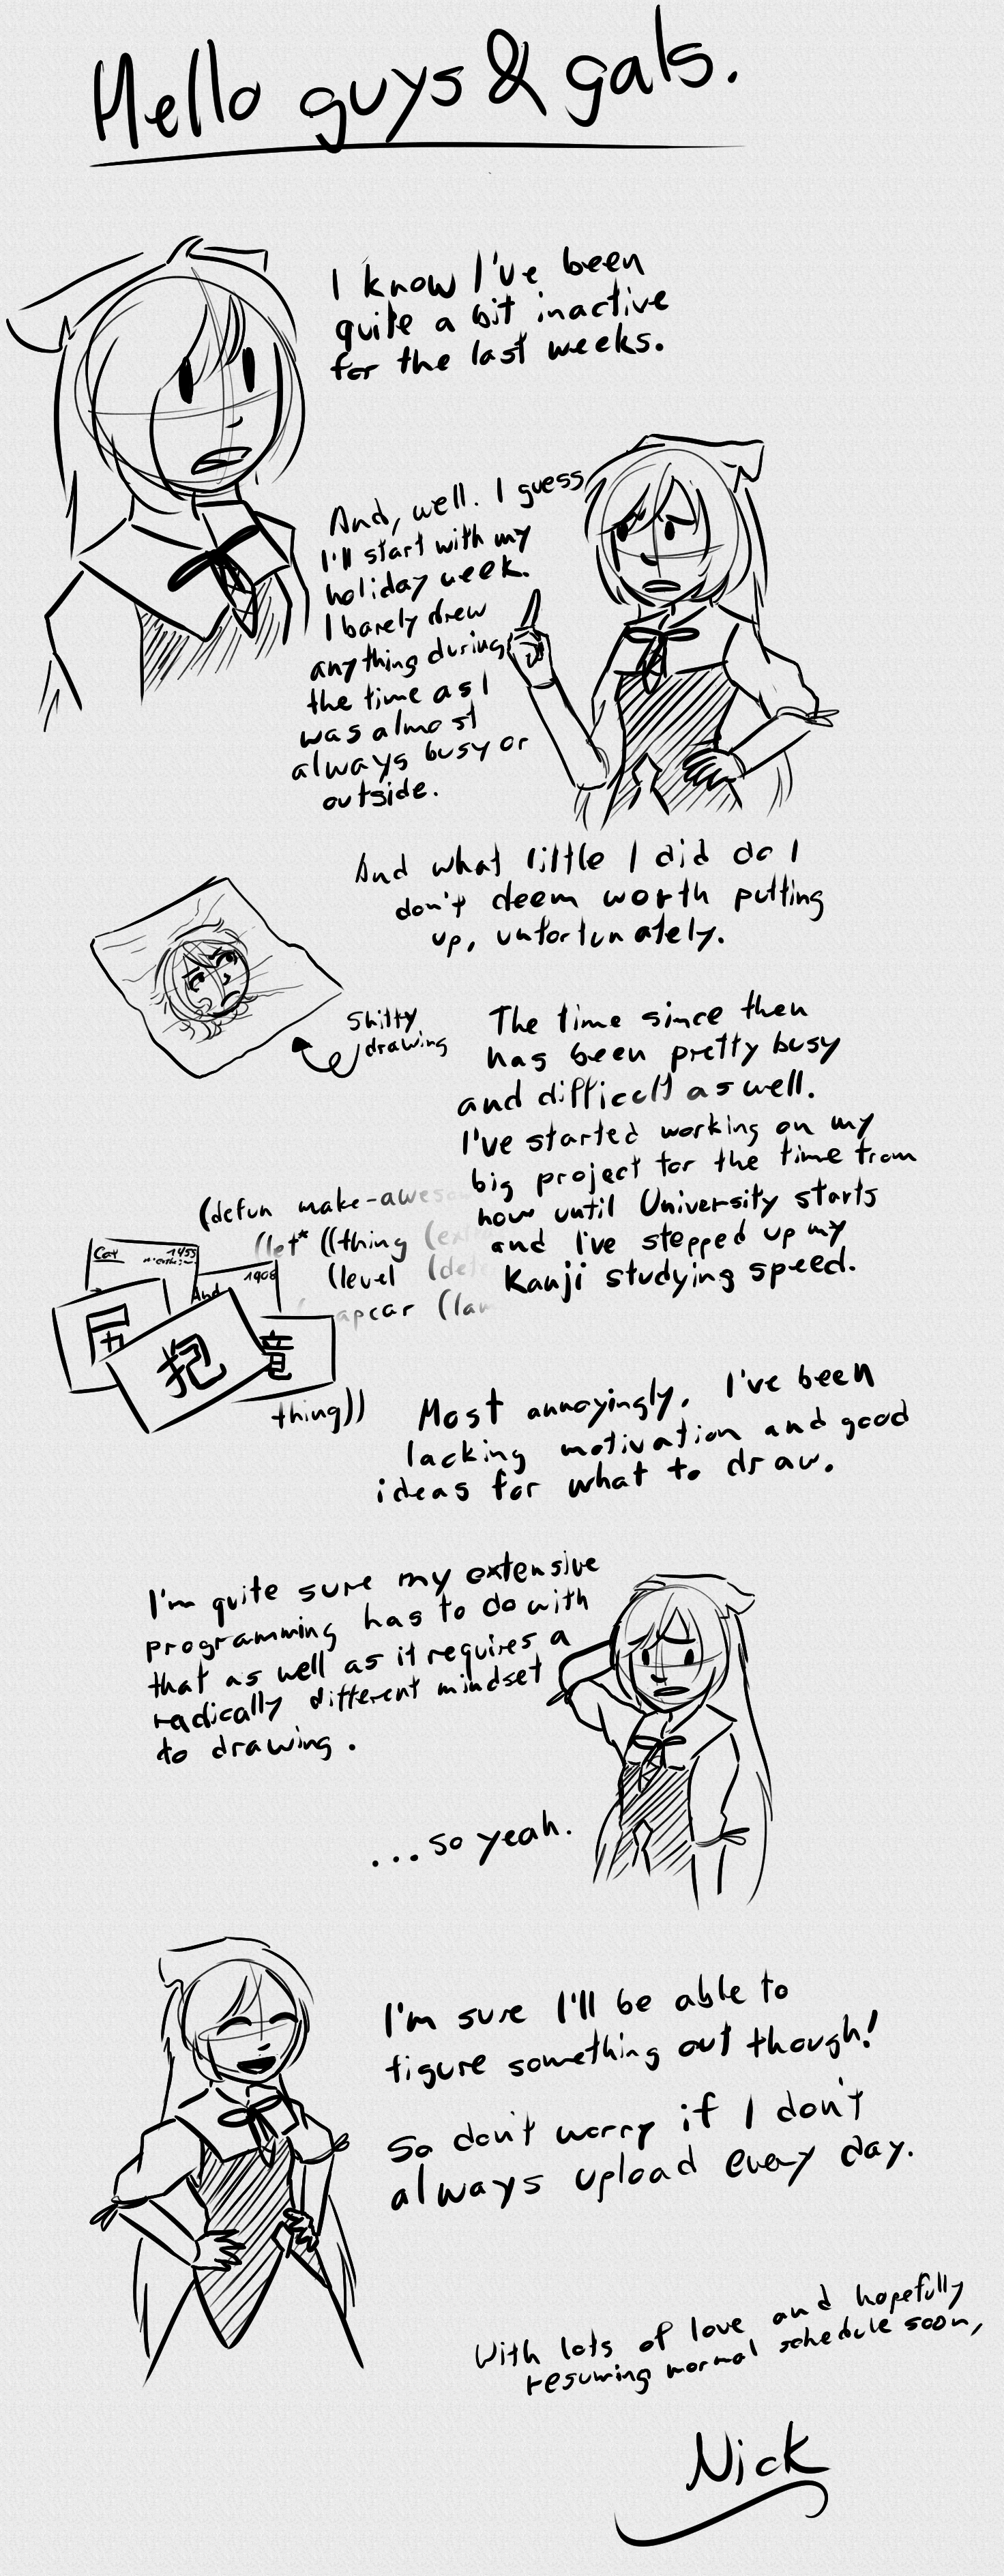 Hello guys & gals.
I know I've been
quite a bit inactive
for the last weeks.
And, well. I guess
I'll start with my
holiday week.
I barely drew
anything during
the time as I
was almost
always busy or
outside.
And what little I did do I
don't deem worth putting
up, unfortunately.
Shitty
drawing
The time since then
has been pretty busy
and difficult as well.
I've started working on my
big project for the time from
now until University starts
and I've stepped up my
Kanji studying speed.
(defun make-aweso
(let* ((thing (ex
(level (de
apcar (lam
thing))
1455
1906
And
尻
抱
竟
Most annoyingly, I've been
lacking motivation and good
ideas for what to draw.
I'm quite sure my extensive
programming has to do with
that as well as it requires a
radically different mindset
to drawing.
...so yeah.
I'm sure I'll be able to
figure something out though!
So don't worry if I don't
always upload every day.
With lots of love and hopefully
resuming normal schedule soon,
Nick